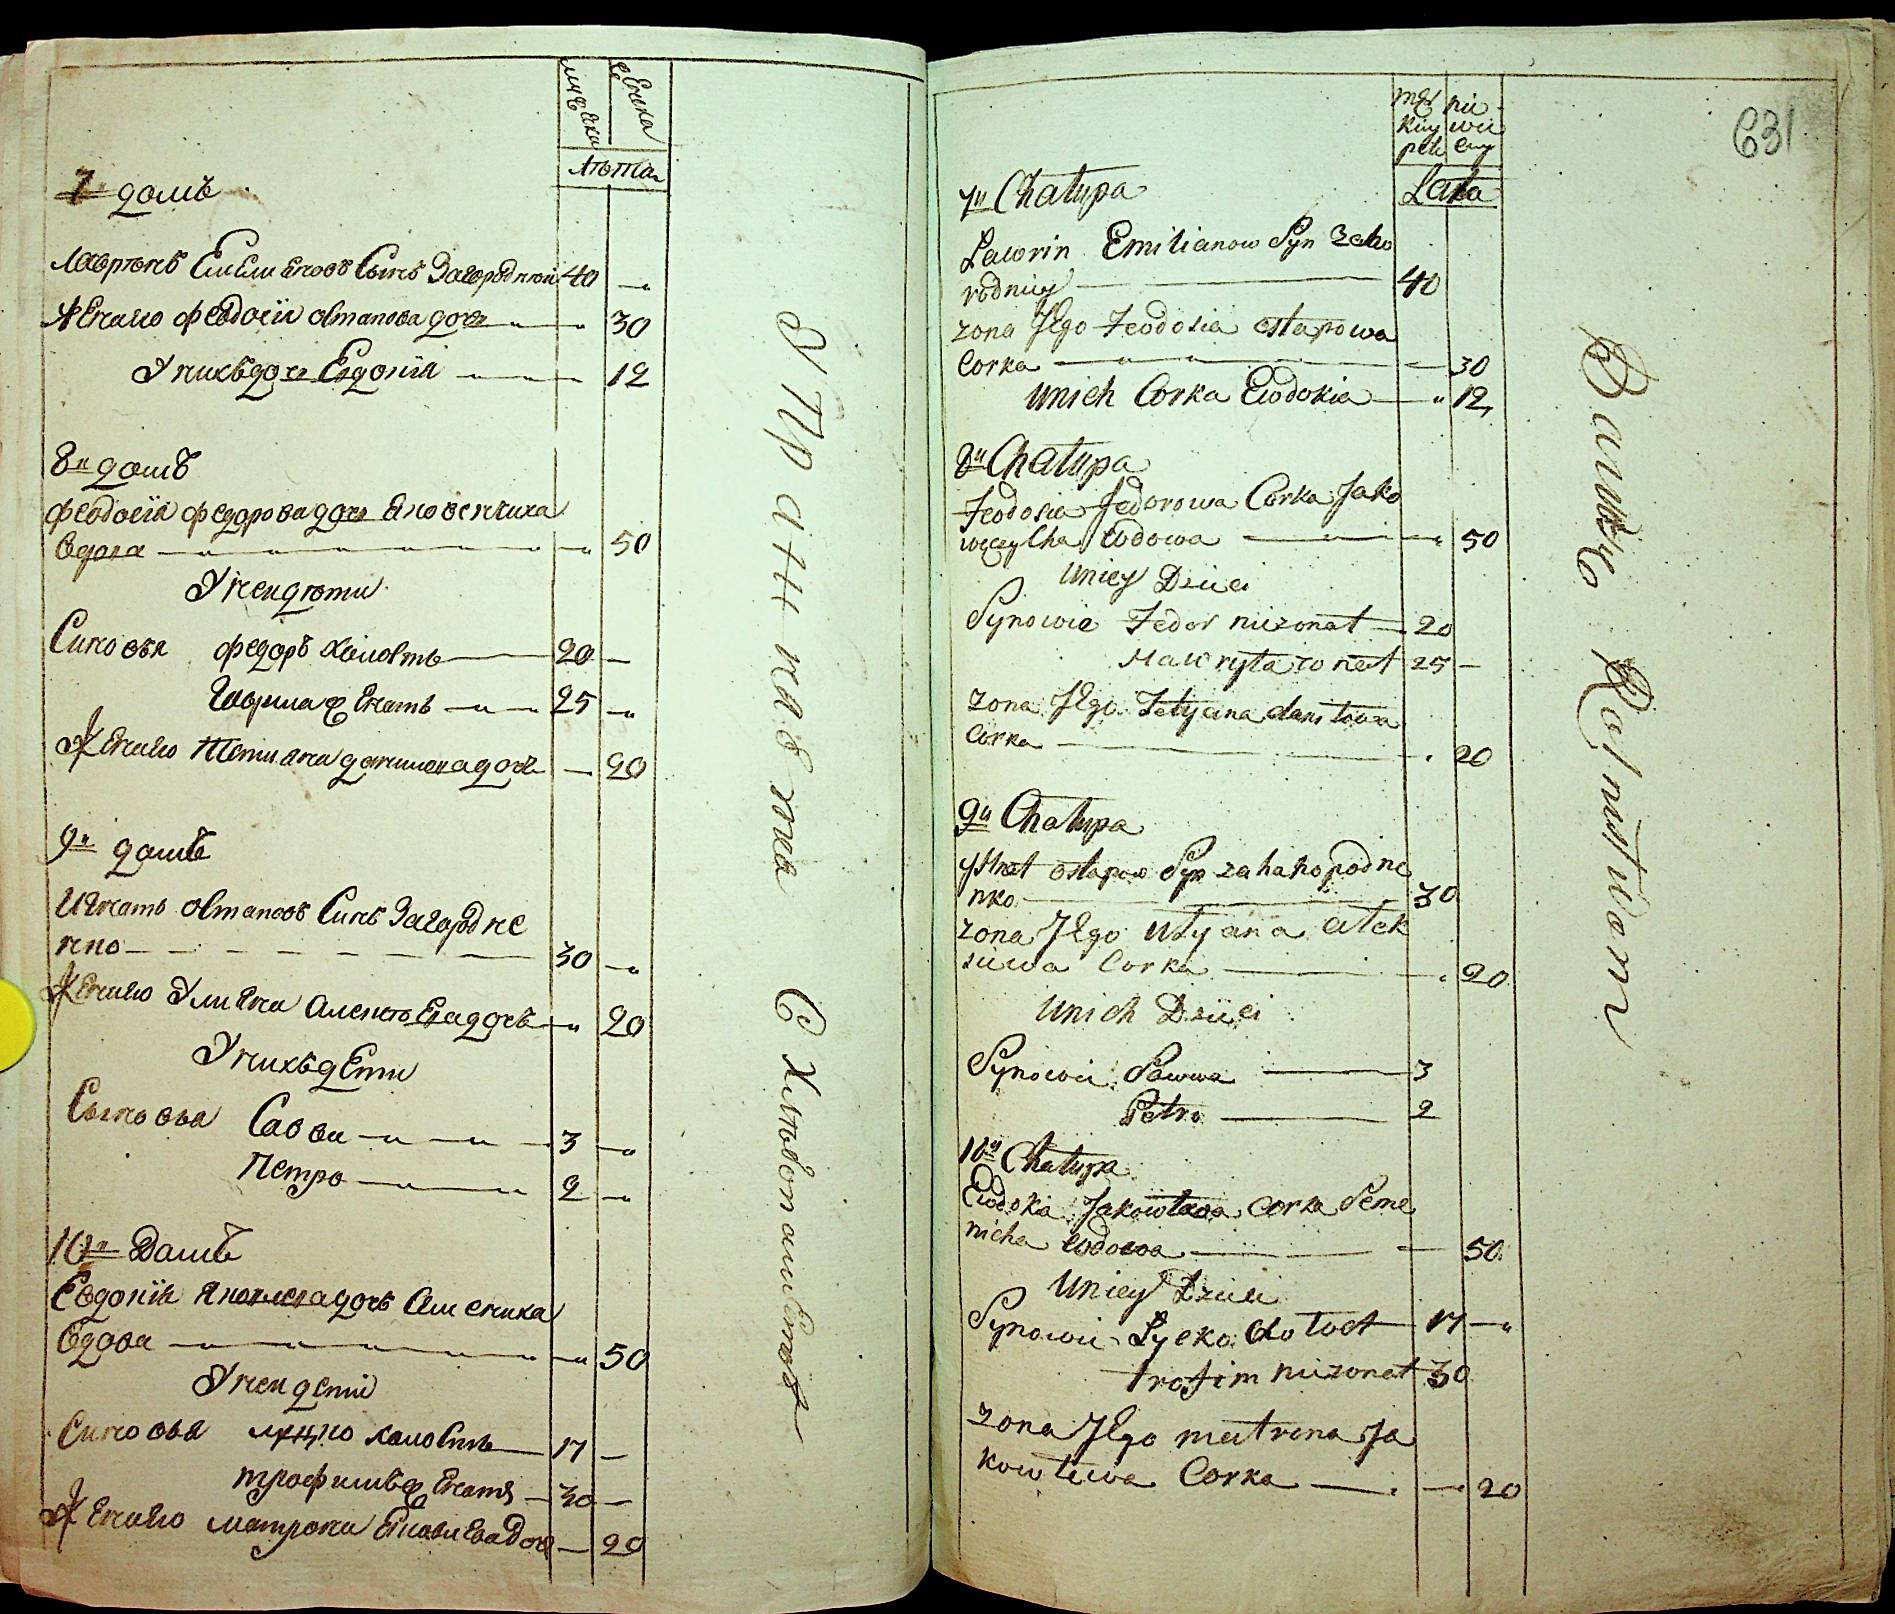 7 домъ
Лаврѣнъ Емельяновъ Сынъ Загородній 40 —
Жена его Феодосія Остапова дочь — 30
У нихъ дочь Евдокія — 12
8й домъ
Феодосія Федорова дочь Яковенчиха
вдова — 50
У ней дѣти
Синовья Федоръ холостъ — 20 —
Гаврила женатъ — 25 —
Жена его Тетияна Данилова дочь — 20
9й домъ
Игнатъ Остаповъ Синъ Загородне
нко — 30 —
Жена его Улияна Алексѣева дочь — 20
У нихъ дети
Сыновья Савва — 3 —
Петро — 2 —
10й Домъ
Евдокія Яковлева дочь Семениха
вдова — 50
У ней дети
Синовья Лицко холостъ — 17 —
Трофимъ женатъ — 30 —
Жена его Матрона Яковлева дочь — 20
631
Lata
7й Chatupa
Lawrin Emilianow Syn Zaho
rodniy — 40
zona Jego Feodosia ostapowa
Corka — 30
Unich Corka Ewdokia — 12
8й Chatupa
Feodosia Fedorowa Corka Jako
wczycha wdowa — 50
Uniey Dziei
Synowie Fedor niezonat — 20
Hawryla zonat 25 —
zona Jego Tetyana daniłowa
Corka — 20
9й Chatupa
ostapow Syn zahahopodne
nko — 30
zona Jego Ulyana alek
siiwa Corka — 20
Unich Dziiei
Synowii Sawwa — 3
Petro — 2
10й Chatupa
Ewdokia Jakowlewa Corka Seme
nicha wdowa — 50
Uniey Dziei
Synowii Lycko — 17 —
trofim niezonat 30
zona Jego matrona Ja
kowlewa Corka — 20